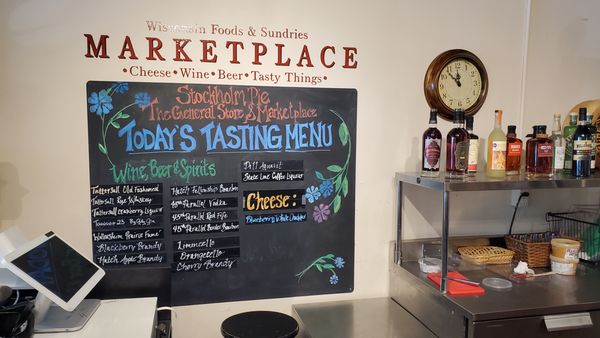 Wisconsin Foods & Sundries
MARKETPLACE
Cheese • Wine • Beer • Tasty Things •
Stockholm Pie
The General Store & Marketplace
TODAY'S TASTING MENU
Wine, Beer & Spirits
Tattersall Old Fashioned
Tattersall Rye Whiskey
Tattersall Cranberry Liqueur
Wollersheim Prairie Fumé
Blackberry Brandy
Hatch Apple Brandy
Hatch Fellowship Bourbon
45th Parallel Vodka
45th Parallel Red Fife
45th Parallel Border Bourbon
Limoncello
Orangecello
Cherry Brandy
Dill Aquavit
State Line Coffee Liqueur
Cheese:
Blueberry Cheddar